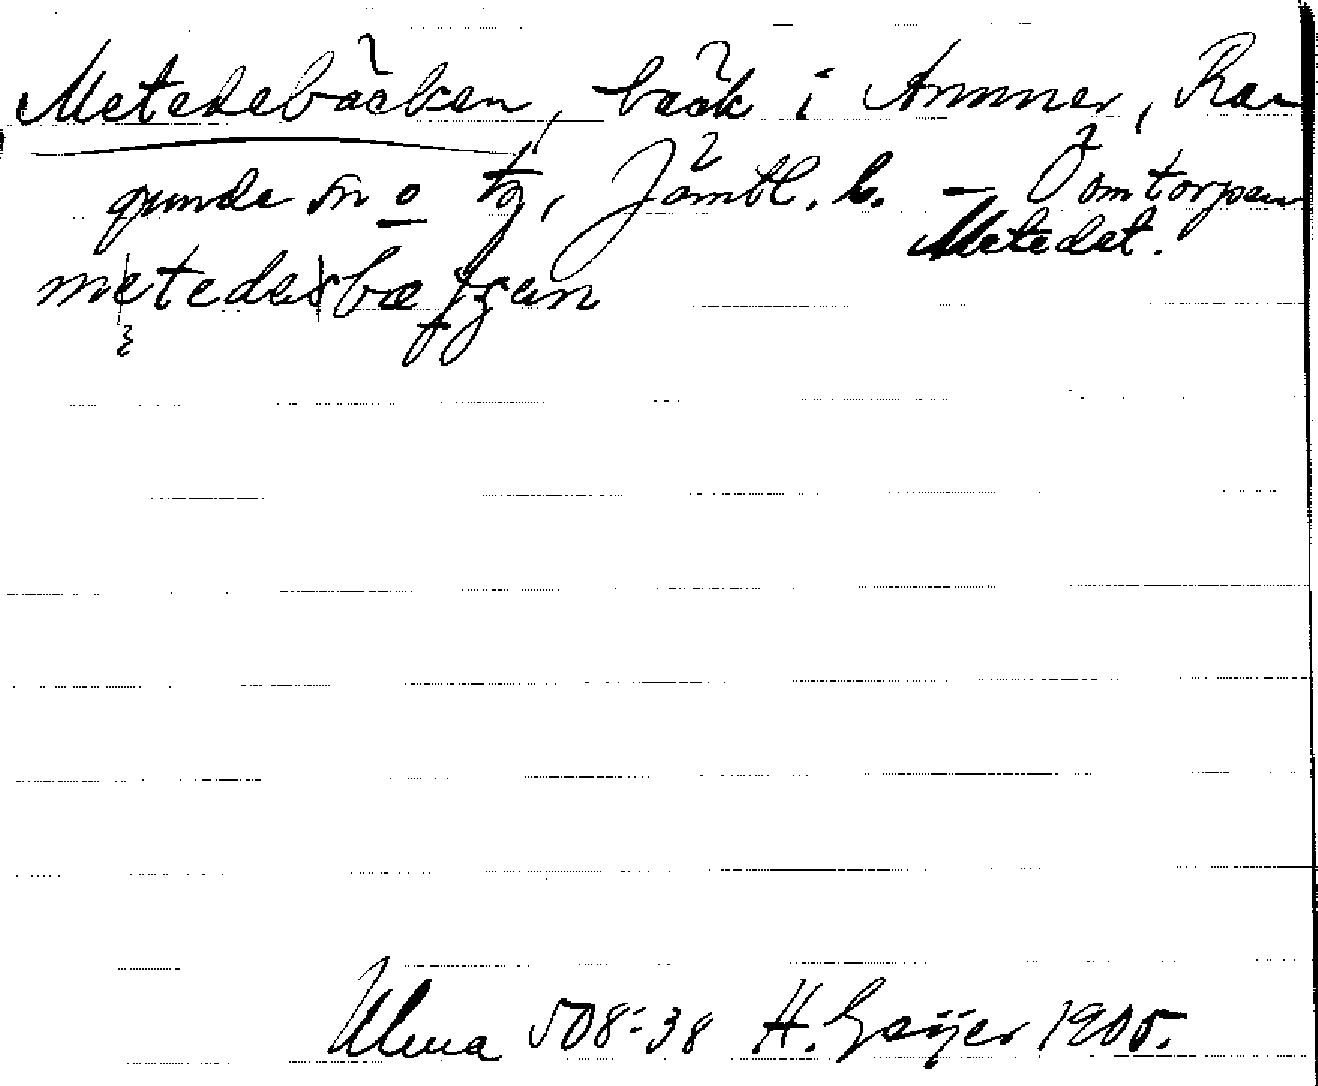 Metedebäcken, bäck i Ammer, Ra-
gunda sn o tg, Jämtl. l. – Ö omtorpen
Metedet.
Ulma 508:38 H. Geijer 1905.